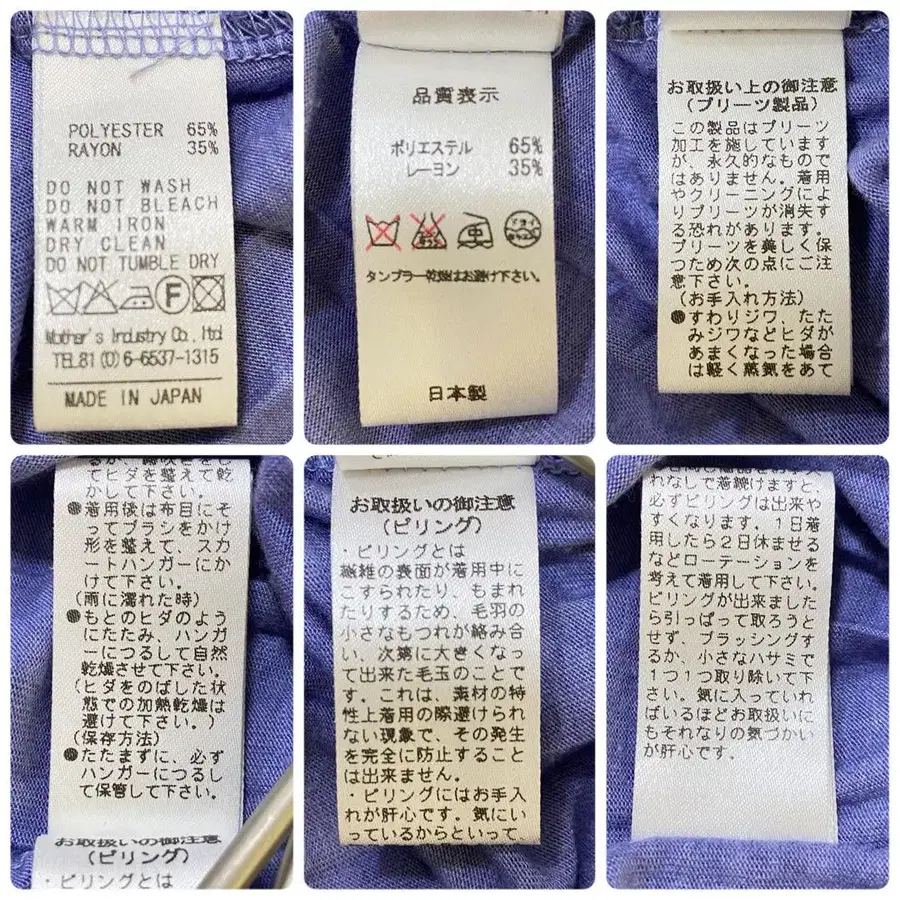 POLYESTER 65%
RAYON 35%
DO NOT WASH
DO NOT BLEACH
WARM IRON
DRY CLEAN
DO NOT TUMBLE DRY
F
Mother's Industry Co., ltd
TEL81(0)6-6537-1315
MADE IN JAPAN
品質表示
ポリエステル 65%
レーヨン 35%
中
タンブラー乾燥はお避け下さい。
日本製
お取扱い上の御注意
(プリーツ製品)
この製品はプリーツ
加工を施しています
が、永久的なもので
はありません。着用
やクリーニングによ
りプリーツが消失す
る恐れがあります。
プリーツを美しく保
つため次の点にご注
意下さい。
(お手入れ方法)
●すわりジワ、たた
みジワなどヒダが
あまくなった場合
は軽く蒸気をあて
てヒダを整えて乾
かして下さい。
●着用後は布目にそ
ってブラシをかけ
形を整えて、スカ
ートハンガーにか
けて下さい。
(雨に濡れた時)
●もとのヒダのよう
にたたみ、ハンガ
ーにつるして自然
乾燥させて下さい。
(ヒダをのばした状
態での加熱乾燥は
避けて下さい。)
(保存方法)
●たたまずに、必ず
ハンガーにつるし
て保管して下さい。
お取扱いの御注意
(ピリング)
・ピリングとは
お取扱いの御注意
(ピリング)
・ピリングとは
繊維の表面が着用中に
こすられたり、もまれ
たりするため、毛羽の
小さなもつれが絡み合
い、次第に大きくなっ
て出来た毛玉のことで
す。これは、素材の特
性上着用の際避けられ
ない現象で、その発生
を完全に防止すること
は出来ません。
・ピリングにはお手入
れが肝心です。気にい
っているからといって、
れなしで着続けますと、
必ずピリングは出来や
すくなります。1日着
用したら2日休ませる
などローテーションを
考えて着用して下さい。
ピリングが出来ました
ら引っぱって取ろうと
せず、ブラッシングす
るか、小さなハサミで
1つ1つ取り除いて下
さい。気に入っていれ
ばいるほどお取扱いに
もそれなりの気づかい
が肝心です。